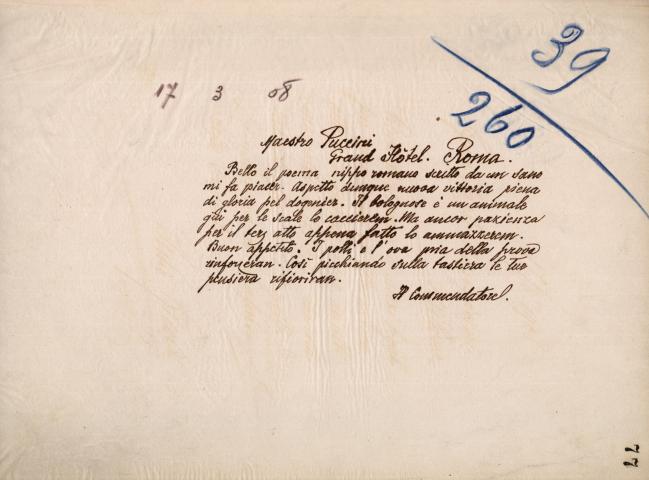 39
260
17 3 08
Maestro Puccini
Grand Hôtel. Roma.
Bello il poema nippo romano scritto da un sano
mi fa piacer. Aspetto dunque nuova vittoria piena
di gloria pel dogmier. Il bolognose è un animale
giù per le scale lo caccierem. Ma ancor pazienza
per il terz atto appena fatto lo ammazzerem.
Buon appetito. I polli e l'ova pria della prova
Così picchiando sulla tastiera le tue
rifioriran.
Il Commendatore.
77